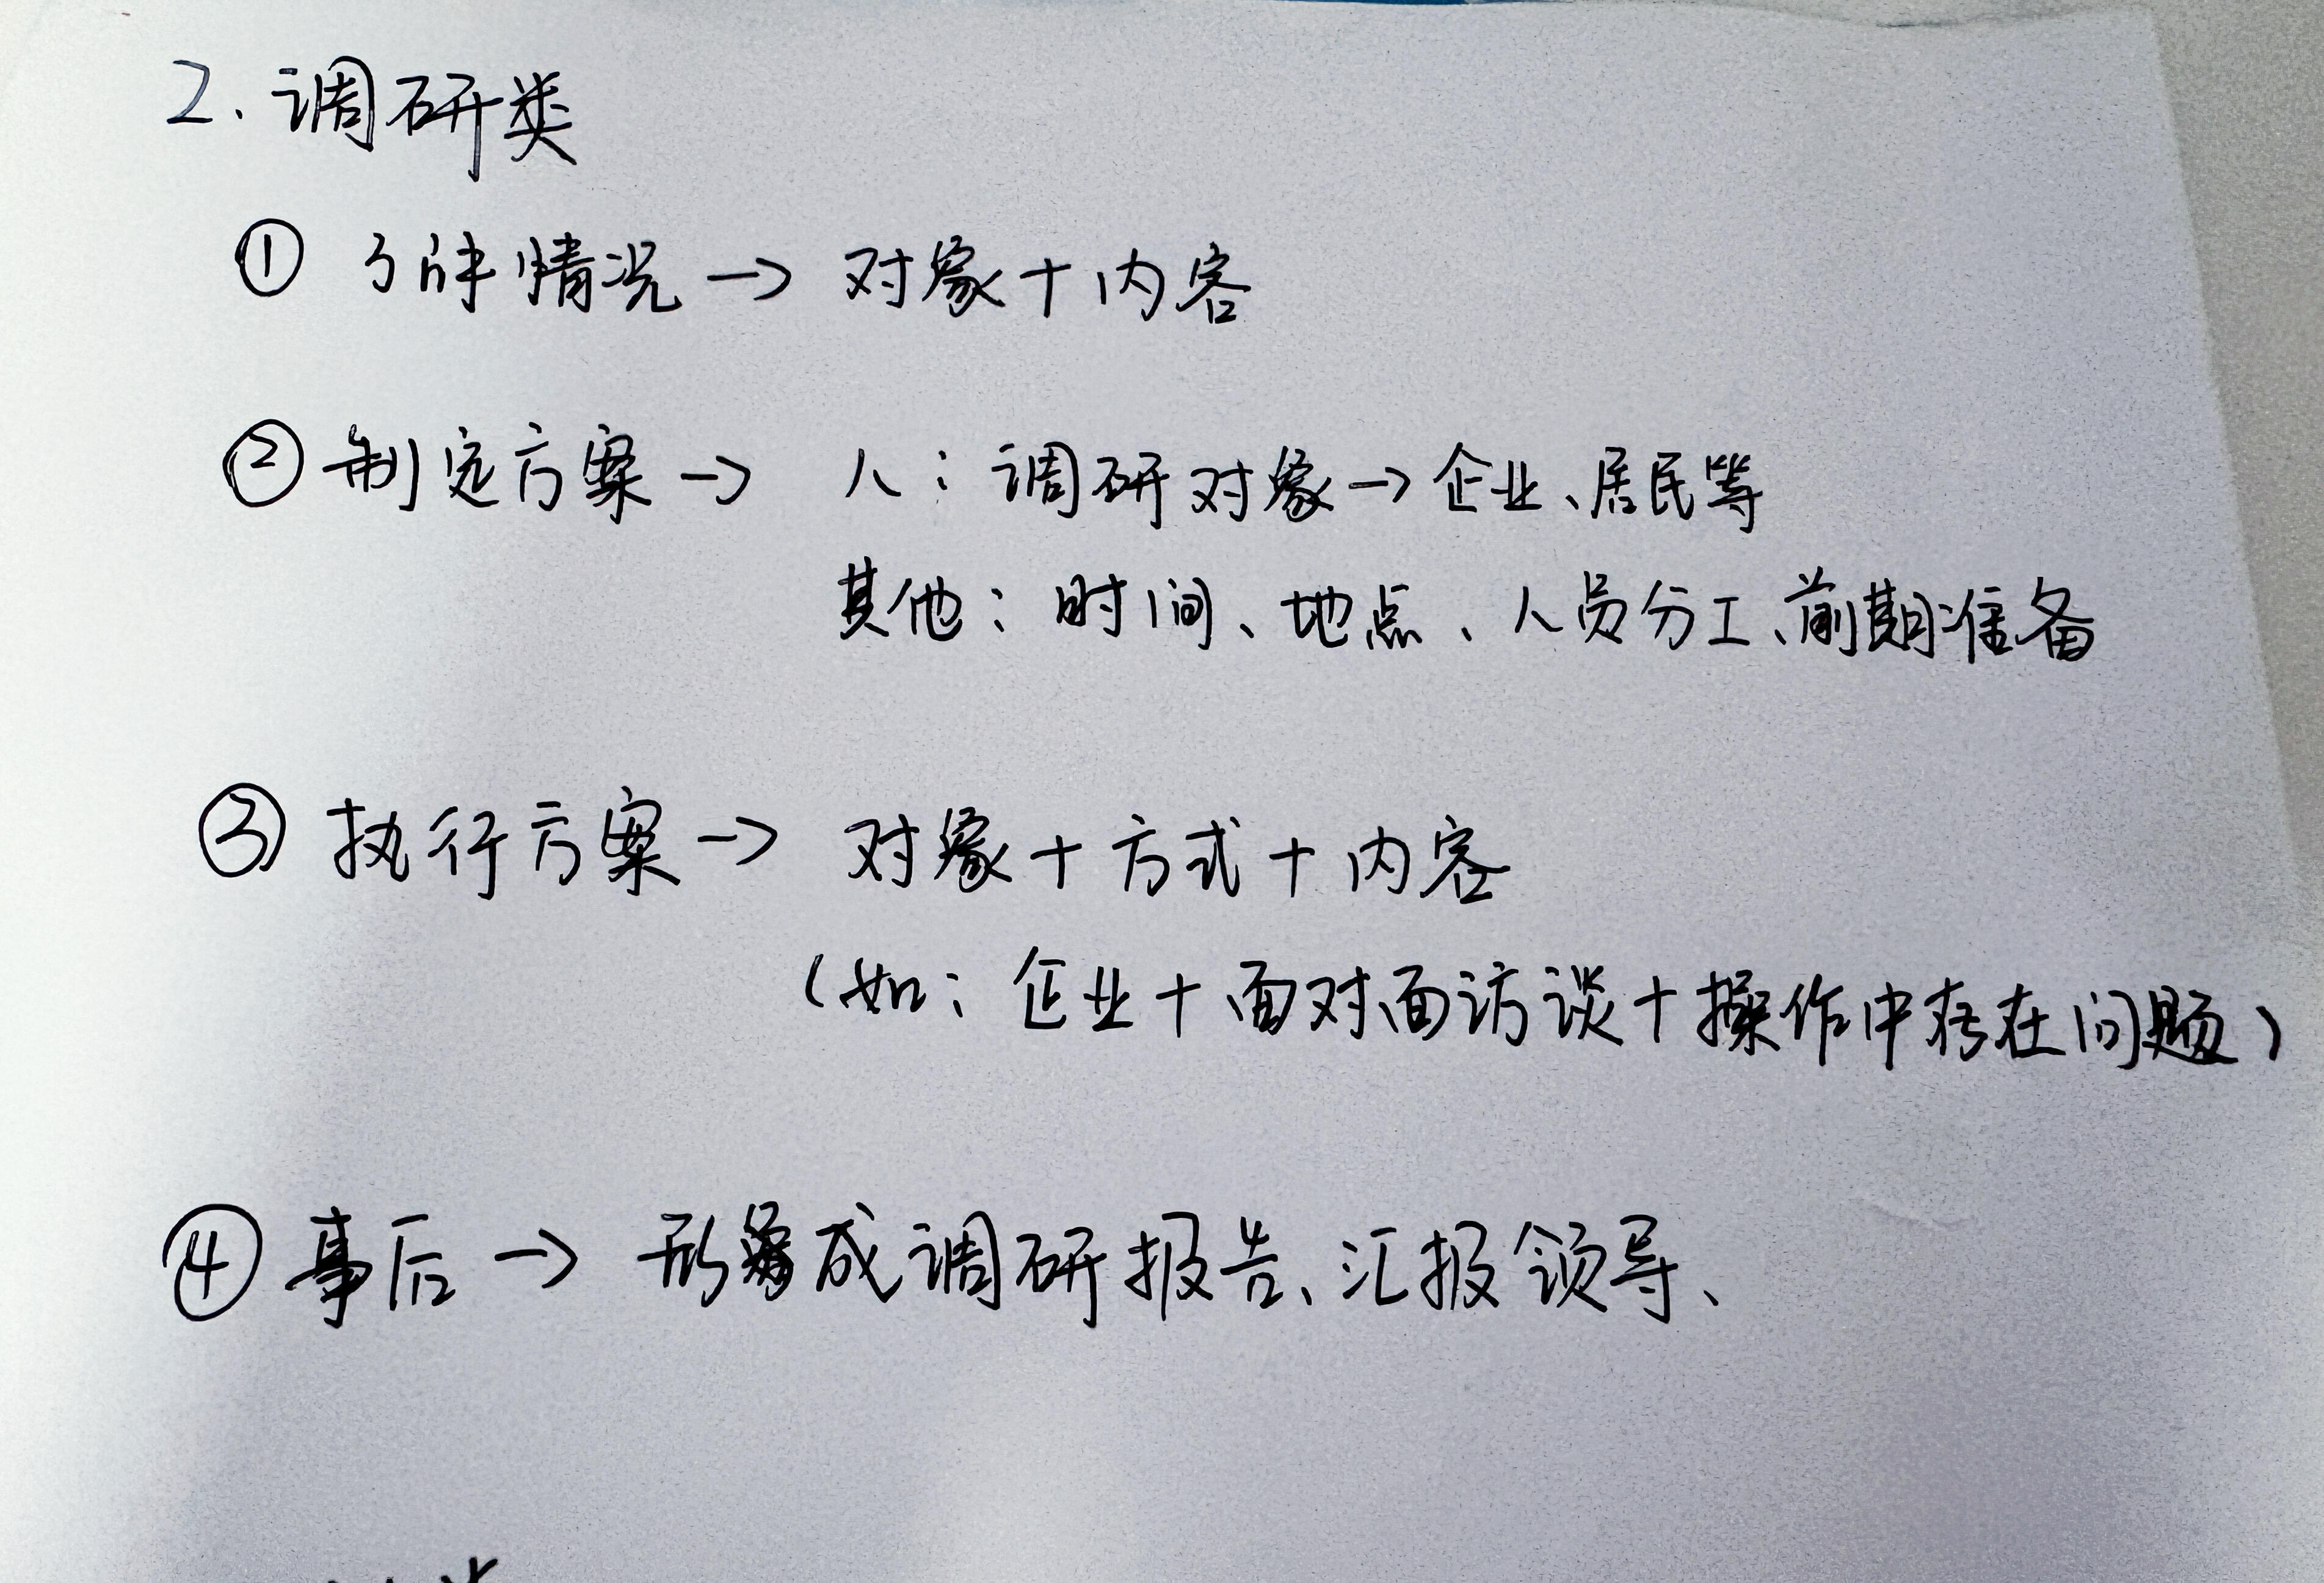 2、调研类
① 了解情况 → 对象 + 内容
② 制定方案 → 人：调研对象 → 企业、居民等
其他：时间、地点、人员分工、前期准备
③ 执行方案 → 对象 + 方式 + 内容
（如：企业 + 面对面访谈 + 操作中存在问题）
④ 事后 → 形成调研报告、汇报领导、